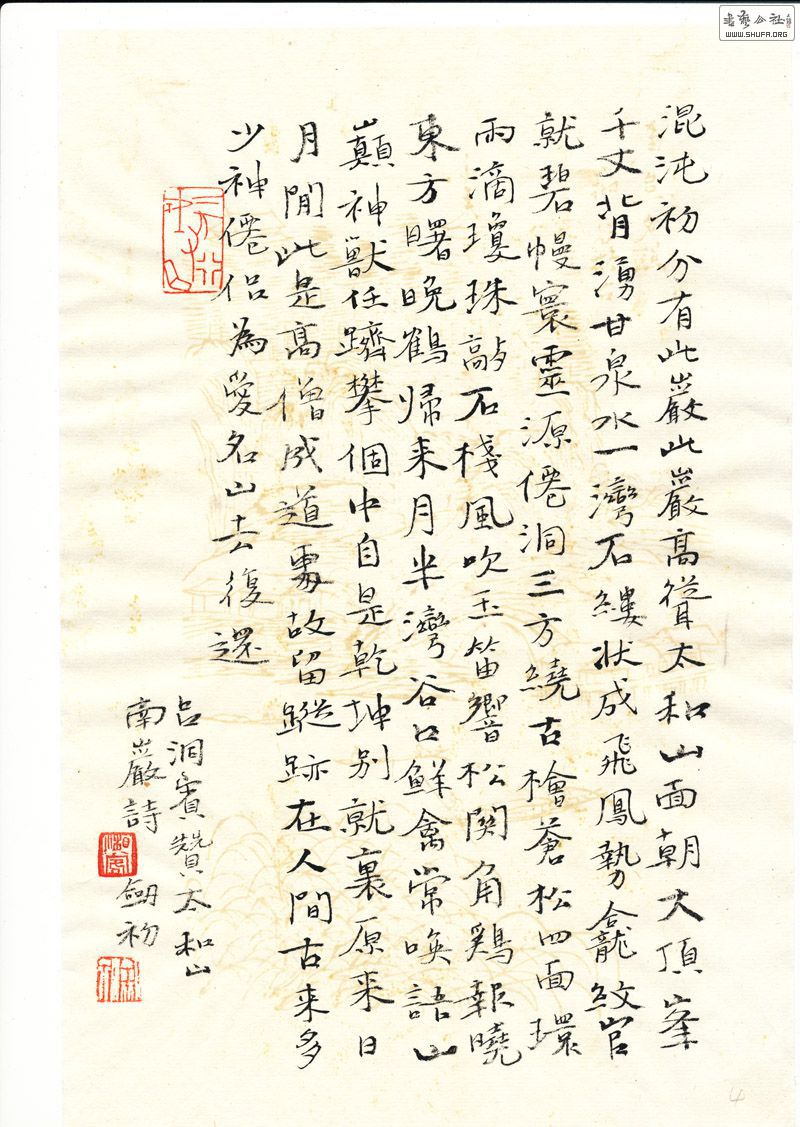 混沌初分有此巖此巖高聳太和山面朝大頂峯
千丈背湧甘泉水一灣石縷狀成飛鳳勢龕紋官
就碧幔寰靈源僊洞三方繞古檜蒼松四面環
雨滴瓊珠敲石棧風吹玉笛響松関角鷄報曉
東方曙晚鶴歸来月半灣谷口鮮禽常喚語山
巔神獸任躋攀個中自是乾坤別就裏原来日
月閒此是高僧成道處故留蹤跡在人間古来多
少神僊侶為愛名山去復還
呂洞賓贊太和山
南巖詩 劍初
書藝公社
WWW.SHUFA.ORG
4